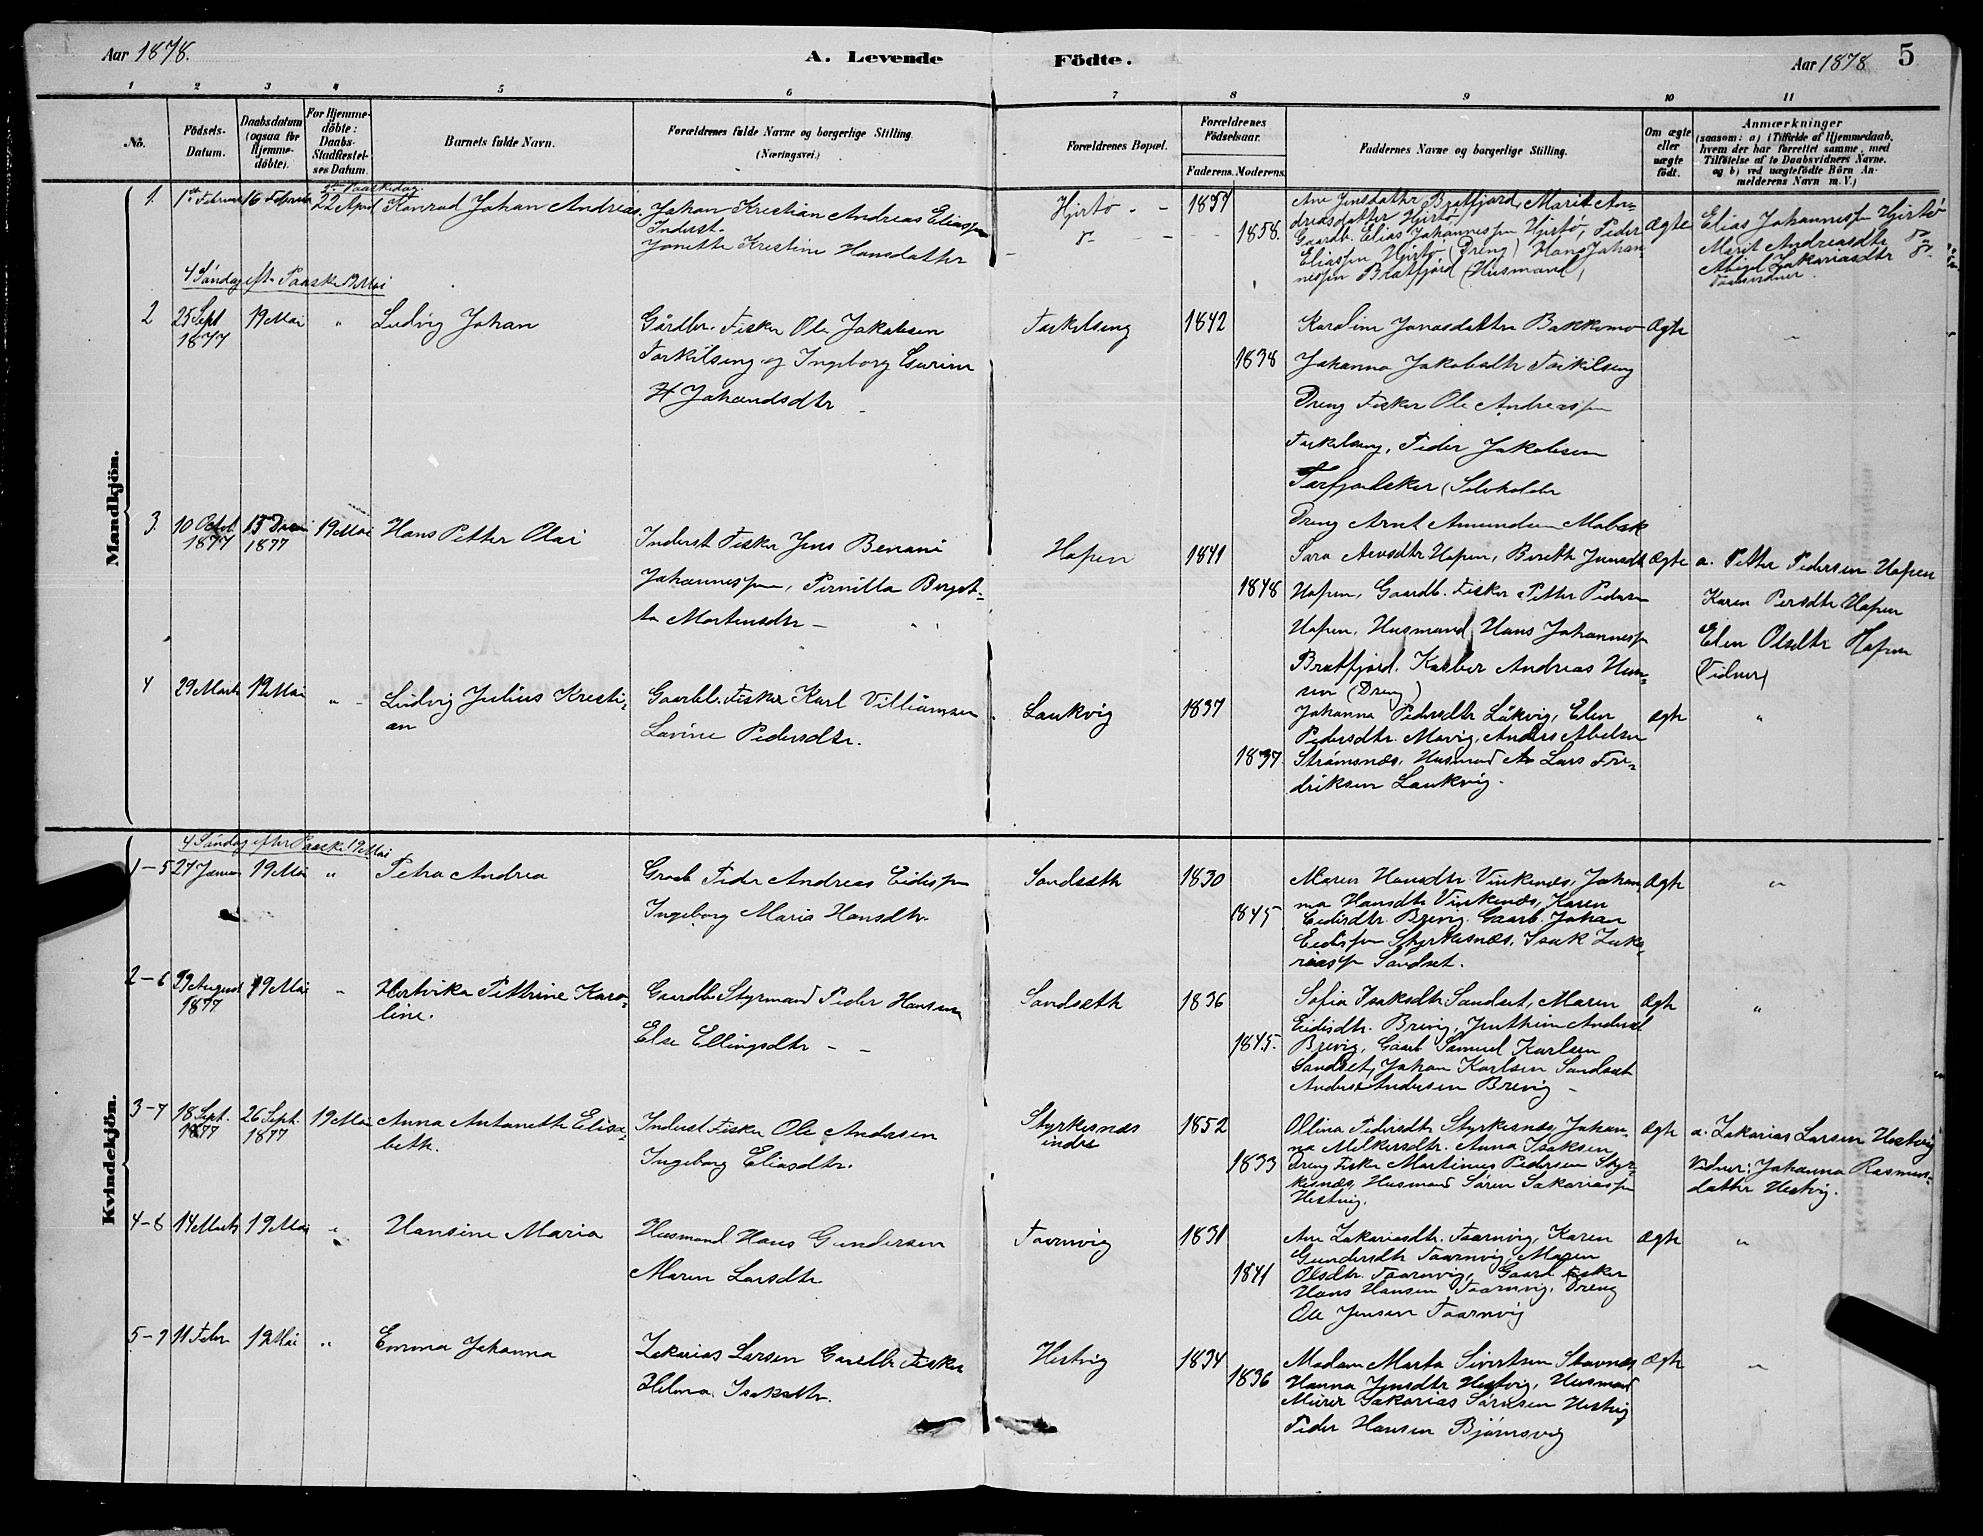 Aar 1878.
A. Levende Födte.
Aar 1878
5
1 2 3 4 5 6 7 8 9 10 11
No.
Födsels-
Datum.
Daabsdatum
(ogsaa for
Hjemme-
döbte).
For Hjemme-
döbte:
Daabs-
Stadfæstel-
ses Datum.
Barnets fulde Navn.
Forældrenes fulde Navne og borgerlige Stilling.
(Næringsvei.)
Forældrenes Bopæl.
Forældrenes
Födselsaar.
Faderens. Moderens.
Faddernes Navne og borgerlige Stilling.
Om ægte
eller
uægte
födt.
Anmærkninger
(saasom: a) i Tilfælde af Hjemmedaab,
hvem der har forrettet samme, med
Tilföielse af to Daabsvidners Navne,
og b) ved uægtefödte Börn An-
melderens Navn m. V.)
Mandkjön.
1. 1ste Februar 16 Februar
2den Paaskedag
22 April
Konrad Johan Andreas.
Johan Kristian Andreas Eliassen
Inderst.
Jonette Kristine Hansdatter
Hjirtø - -
1857
1858
Ane Jensdatter Bratfjord, Marit An-
dreasdatter Hjirtø
Gaardb. Elias Johannessen Hjirtø, Peder
Eliassen Hjirtø (Dreng) Hans Johan-
nessen Bratfjord (Husmand)
Ægte
Elias Johannessen Hjirtø
Marit Andreasdtr
Abigel Zakariasdtr
Daabsvidner
4 Søndag eft. Paaske 19 Mai
2 25 Sept
1877
19 Mai "
Ludvig Johan
Gårdbr. Fisker Ole Jakobsen
Torkilseng og Ingeborg
Johansdtr
Torkilseng
1842
1838
Karoline Jonasdatter Bakkemo
Johanna Jakobsdtr Torkilseng
Dreng Fisker Ole Andreassen
Torkilseng, Peder Jakobsen
Dreng Arnt Amundsen
Ægte
"
3. 10 Octbr
1877
15
1877
19 Mai
Hans Petter Olai
Inderst Fisker Jens Benoni
Johannessen, Pernilla Birgit-
ta Mortensdtr -
Hopen
1841
1848
Sara Hopen, Bereth Jensdtr
Hopen, Gaardb. Fisker Petter Pedersen
Hopen, Husmand Hans Johannessen
Bratfjord. Andreas Han-
sen (Dreng)
Ægte
a. Petter Pedersen Hopen
Karen Persdtr Hopen
Elen Olsdtr Hopen
(Vidner)
4 29 Marts 19 Mai "
Ludvig Julius Kristi-
an
Gaardb. Fisker Karl Villiamsen
Lavine Pedersdtr.
Laukvig
1837
1837
Johanna Pedersdtr Låkvig, Elen
Pedersdtr. Movig, Anders Abelsen
Strømsnæs, Husmand Lars Fre-
driksen Laukvig.
ægte
"
Kvindekjön.
4 Søndag efter Paaske 19 Mai
1-5 27 Januar 19 Mai "
Petra Andrea
Gaardb Peder Andreas Eidissen
Ingeborg Maria Hansdtr.
Sandsæth
1830
1845
Maren Hansdtr Vinkenæs, Johan-
na Hansdtr Vinkenæs, Karen
Eidisdtr. Brevig. Gaardb. Johan
Eidissen Styrkesnæs, Isak Zaka-
riassen Sandset.
Ægte
"
2-6 29 August
1877
19 Mai "
Hertvika Pettrine Karo-
line.
Gaardbr Styrmand Peder Hansen
Else Ellingsdtr - -
Sandsæth
1836
1845.
Sofia Isaksdtr Sandset, Maren
Eidisdtr. Brevig,
Brevig, Gaardb Samuel Karlsen
Sandset, Johan Karlsen Sandset
Anders Andersen Brevig -
Ægte
"
3-7 18 Sept.
1877
26 Sept.
1877
19 Mai
Anna Antonette Elisa-
beth.
Inderst Fisker Ole Andersen
Ingeborg Eliasdtr.
Styrkesnæs
indre
1852
1833
Ollina Pedersdtr Styrkesnæs, Johan-
na Melkersdtr. Anna Isaksen
Dreng Fisker Martinus Pedersen Styr-
kesnæs, Husmand Sören Sakariassen
Hestvig.
Ægte
a. Zakarias Larsen Hestvig
Vidner: Johanna Rasmus-
datter Hestvig.
4-8 14 Marts 19 Mai "
Hansine Maria
Husmand Hans Gundersen
Maren Larsdtr
Taarnvig
1831
1841
Ane Zakariasdtr. Taarnvig, Karen
Gundersdtr Taarnvig, Maren
Olsdtr. Taarnvig, Gaardb. Fisker
Hans Hansen Taarnvig, Dreng
Ole Jensen Taarnvig
Ægte
"
5-9 11 Febr 19 Mai "
Emma Johanna
Zakarias Larsen Gaardbr Fisker
Helena Isaksdtr.
Hestvig
1834
1836
Madam Marta Sivertsen Stavnæs,
Hanna Jensdtr Hestvig, Husmand
Murer Zakarias Sørensen Hestvig
Peder Hansen Bjørnsvig
Ægte
"